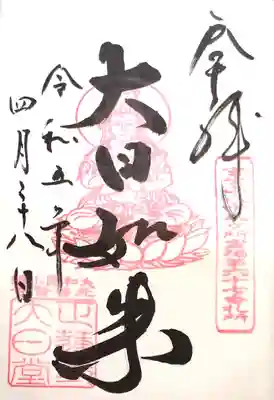 奉拝
大日如来
令和五年
四月二十八日
大日堂